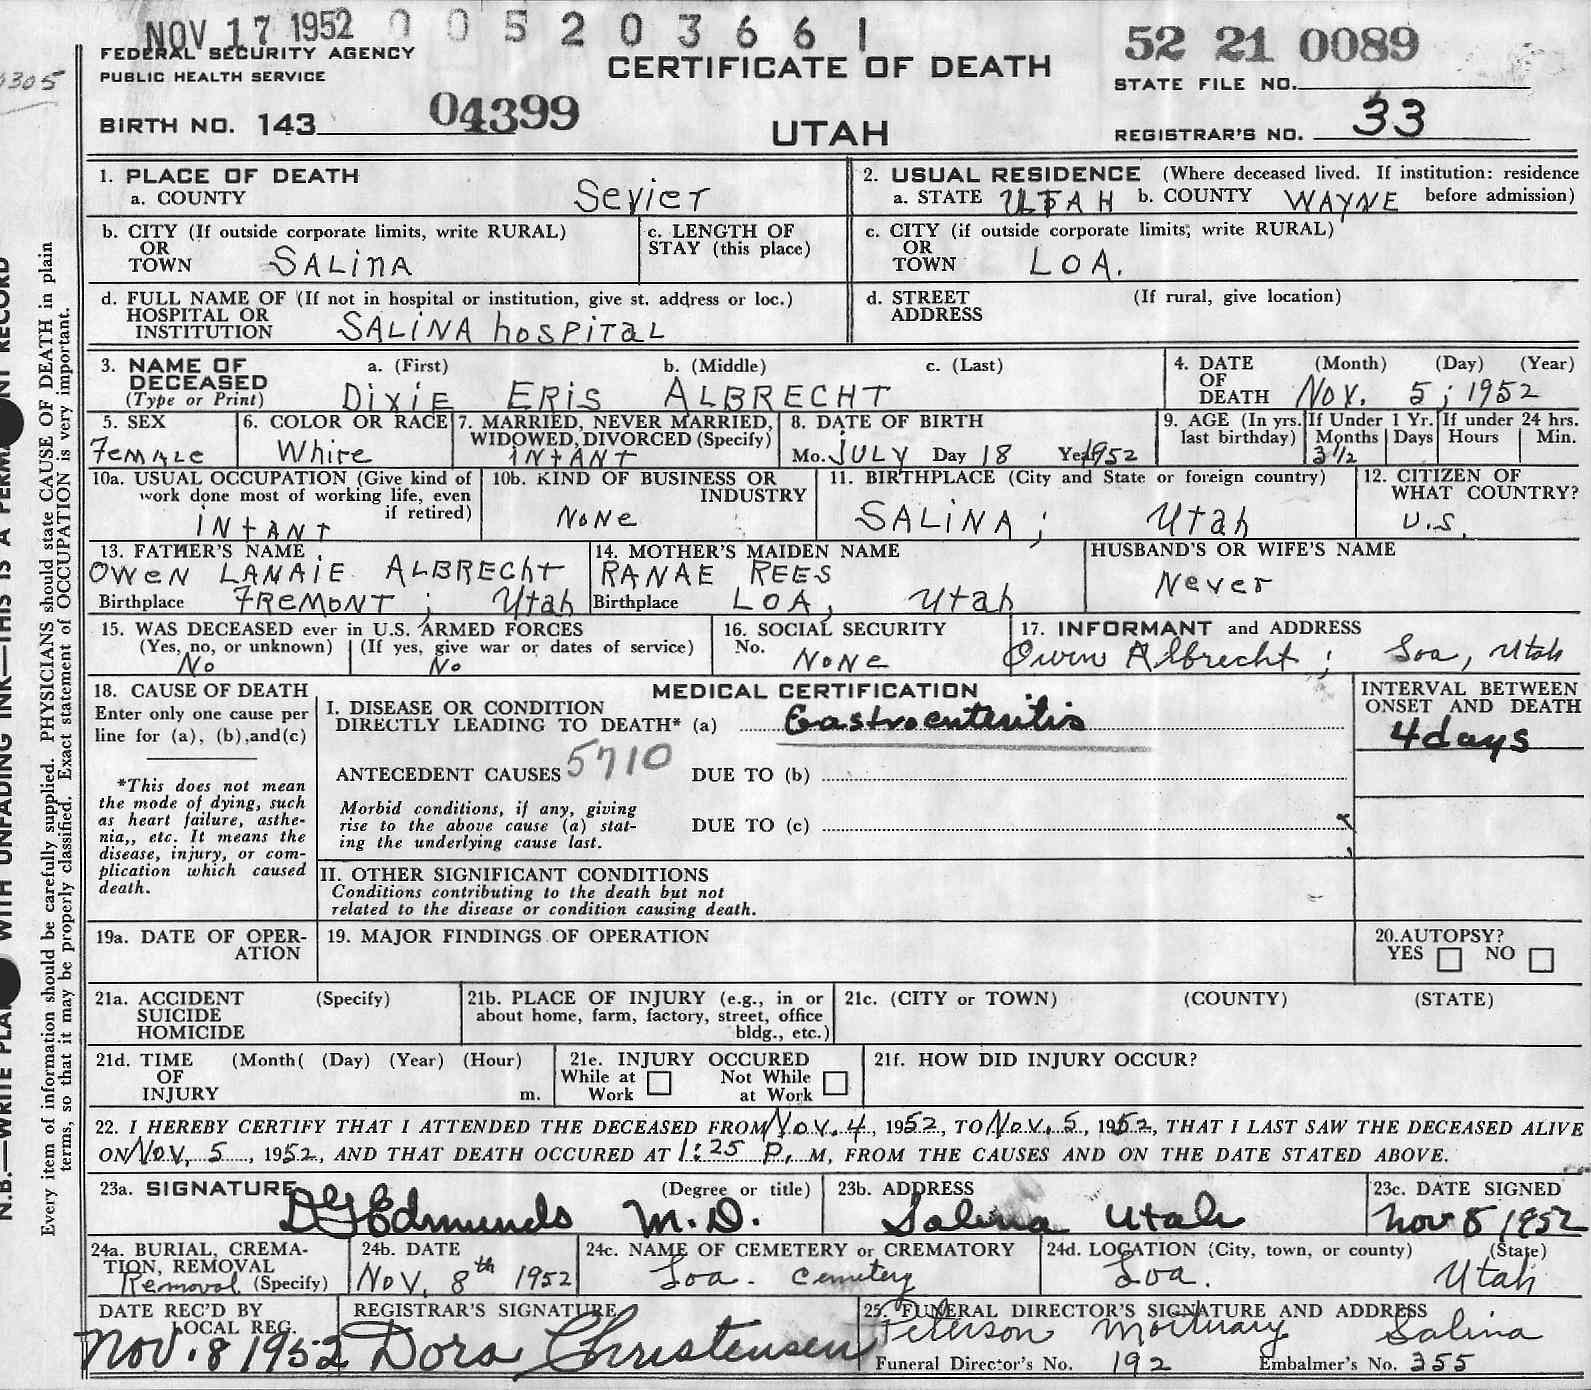 NOV 17 1952 0 0 5 2 0 3 6 6 1
52 21 0089
FEDERAL SECURITY AGENCY
PUBLIC HEALTH SERVICE
CERTIFICATE OF DEATH
STATE FILE NO.
305
BIRTH NO. 143 04399
UTAH
REGISTRAR'S NO. 33
N.B.—WRITE PLAI WITH UNFADING INK—THIS IS A PERMA NT RECORD
Every item of information should be carefully supplied. PHYSICIANS should state CAUSE OF DEATH in plain
terms, so that it may be properly classified. Exact statement of OCCUPATION is very important.
1. PLACE OF DEATH
a. COUNTY Sevier
2. USUAL RESIDENCE (Where deceased lived. If institution: residence
a. STATE UTAH b. COUNTY WAYNE before admission)
b. CITY (If outside corporate limits, write RURAL)
OR
TOWN SALINA
c. LENGTH OF
STAY (this place)
c. CITY (if outside corporate limits, write RURAL)
OR
TOWN LOA.
d. FULL NAME OF (If not in hospital or institution, give st. address or loc.)
HOSPITAL OR
INSTITUTION SALINA hOSPITAL
d. STREET (If rural, give location)
ADDRESS
3. NAME OF a. (First) b. (Middle) c. (Last)
DECEASED
(Type or Print) DIXIE ERIS ALBRECHT
4. DATE (Month) (Day) (Year)
OF
DEATH Nov. 5, 1952
5. SEX
FEMALE
6. COLOR OR RACE
White
7. MARRIED, NEVER MARRIED,
WIDOWED, DIVORCED (Specify)
INFANT
8. DATE OF BIRTH
Mo. JULY Day 18 Year 1952
9. AGE (In yrs. If Under 1 Yr. If under 24 hrs.
last birthday) Months Days Hours Min.
3 1/2
10a. USUAL OCCUPATION (Give kind of
work done most of working life, even
if retired)
INFANT
10b. KIND OF BUSINESS OR
INDUSTRY
NONE
11. BIRTHPLACE (City and State or foreign country)
SALINA; Utah
12. CITIZEN OF
WHAT COUNTRY?
U.S.
13. FATHER'S NAME
OWEN LANAIE ALBRECHT
Birthplace FREMONT; Utah
14. MOTHER'S MAIDEN NAME
RANAE REES
Birthplace LOA, Utah
HUSBAND'S OR WIFE'S NAME
Never
15. WAS DECEASED ever in U.S. ARMED FORCES
(Yes, no, or unknown) (If yes, give war or dates of service)
No No
16. SOCIAL SECURITY
No. NONE
17. INFORMANT and ADDRESS
Owen Albrecht; Loa, Utah
18. CAUSE OF DEATH
Enter only one cause per
line for (a), (b), and(c)
*This does not mean
the mode of dying, such
as heart failure, asthe-
nia,, etc. It means the
disease, injury, or com-
plication which caused
death.
MEDICAL CERTIFICATION
I. DISEASE OR CONDITION
DIRECTLY LEADING TO DEATH* (a) Gastroenteritis
ANTECEDENT CAUSES 5710 DUE TO (b)
Morbid conditions, if any, giving
rise to the above cause (a) stat-
ing the underlying cause last.
DUE TO (c)
INTERVAL BETWEEN
ONSET AND DEATH
4 days
II. OTHER SIGNIFICANT CONDITIONS
Conditions contributing to the death but not
related to the disease or condition causing death.
19a. DATE OF OPER-
ATION
19. MAJOR FINDINGS OF OPERATION
20. AUTOPSY?
YES NO
21a. ACCIDENT (Specify)
SUICIDE
HOMICIDE
21b. PLACE OF INJURY (e.g., in or
about home, farm, factory, street, office
bldg., etc.)
21c. (CITY or TOWN) (COUNTY) (STATE)
21d. TIME (Month( (Day) (Year) (Hour)
OF
INJURY m.
21e. INJURY OCCURED
While at Not While
Work at Work
21f. HOW DID INJURY OCCUR?
22. I HEREBY CERTIFY THAT I ATTENDED THE DECEASED FROM Nov. 4, 1952, TO Nov. 5, 1952, THAT I LAST SAW THE DECEASED ALIVE
ON Nov. 5, 1952, AND THAT DEATH OCCURED AT 1:25 P. M, FROM THE CAUSES AND ON THE DATE STATED ABOVE.
23a. SIGNATURE (Degree or title)
DG Edmunds M.D.
23b. ADDRESS
Salina Utah
23c. DATE SIGNED
Nov 8 1952
24a. BURIAL, CREMA-
TION, REMOVAL
Removal (Specify)
24b. DATE
Nov. 8th 1952
24c. NAME OF CEMETERY or CREMATORY
Loa. Cemetery
24d. LOCATION (City, town, or county) (State)
Loa. Utah
DATE REC'D BY
LOCAL REG.
Nov. 8 1952
REGISTRAR'S SIGNATURE
Dora Christensen
25. FUNERAL DIRECTOR'S SIGNATURE AND ADDRESS
Peterson Mortuary Salina
Funeral Director's No. 192 Embalmer's No. 355